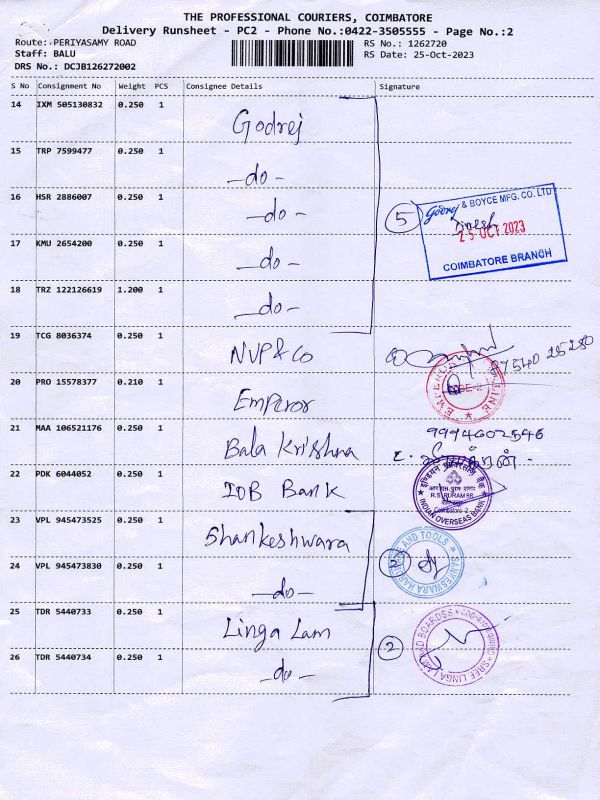 THE PROFESSIONAL COURIERS, COIMBATORE
Delivery Runsheet - PC2 - Phone No.:0422-3505555 - Page No.:2
Route: PERIYASAMY ROAD RS No.: 1262720
Staff: BALU RS Date: 25-Oct-2023
DRS No.: DCJB126272002
S No Consignment No Weight PCS Consignee Details Signature
14 IXM 505130832 0.250 1 Godrej
15 TRP 7599477 0.250 1 -do-
16 HSR 2886007 0.250 1 -do-
5 Godrej & BOYCE MFG. CO. LTD
25 OCT 2023
COIMBATORE BRANCH
17 KMU 2654200 0.250 1 -do-
18 TRZ 122126619 1.200 1 -do-
19 TCG 8036374 0.250 1 NVP & Co
20 PRO 15578377 0.210 1 Emperor
21 MAA 106521176 0.250 1 Bala Krishna 9994602546
22 PDK 6044052 0.250 1 IOB Bank
INDIAN OVERSEAS BANK
23 VPL 945473525 0.250 1 Shankeshwara
24 VPL 945473830 0.250 1 -do- 2
25 TDR 5440733 0.250 1 Linga Lam
26 TDR 5440734 0.250 1 -do- 2